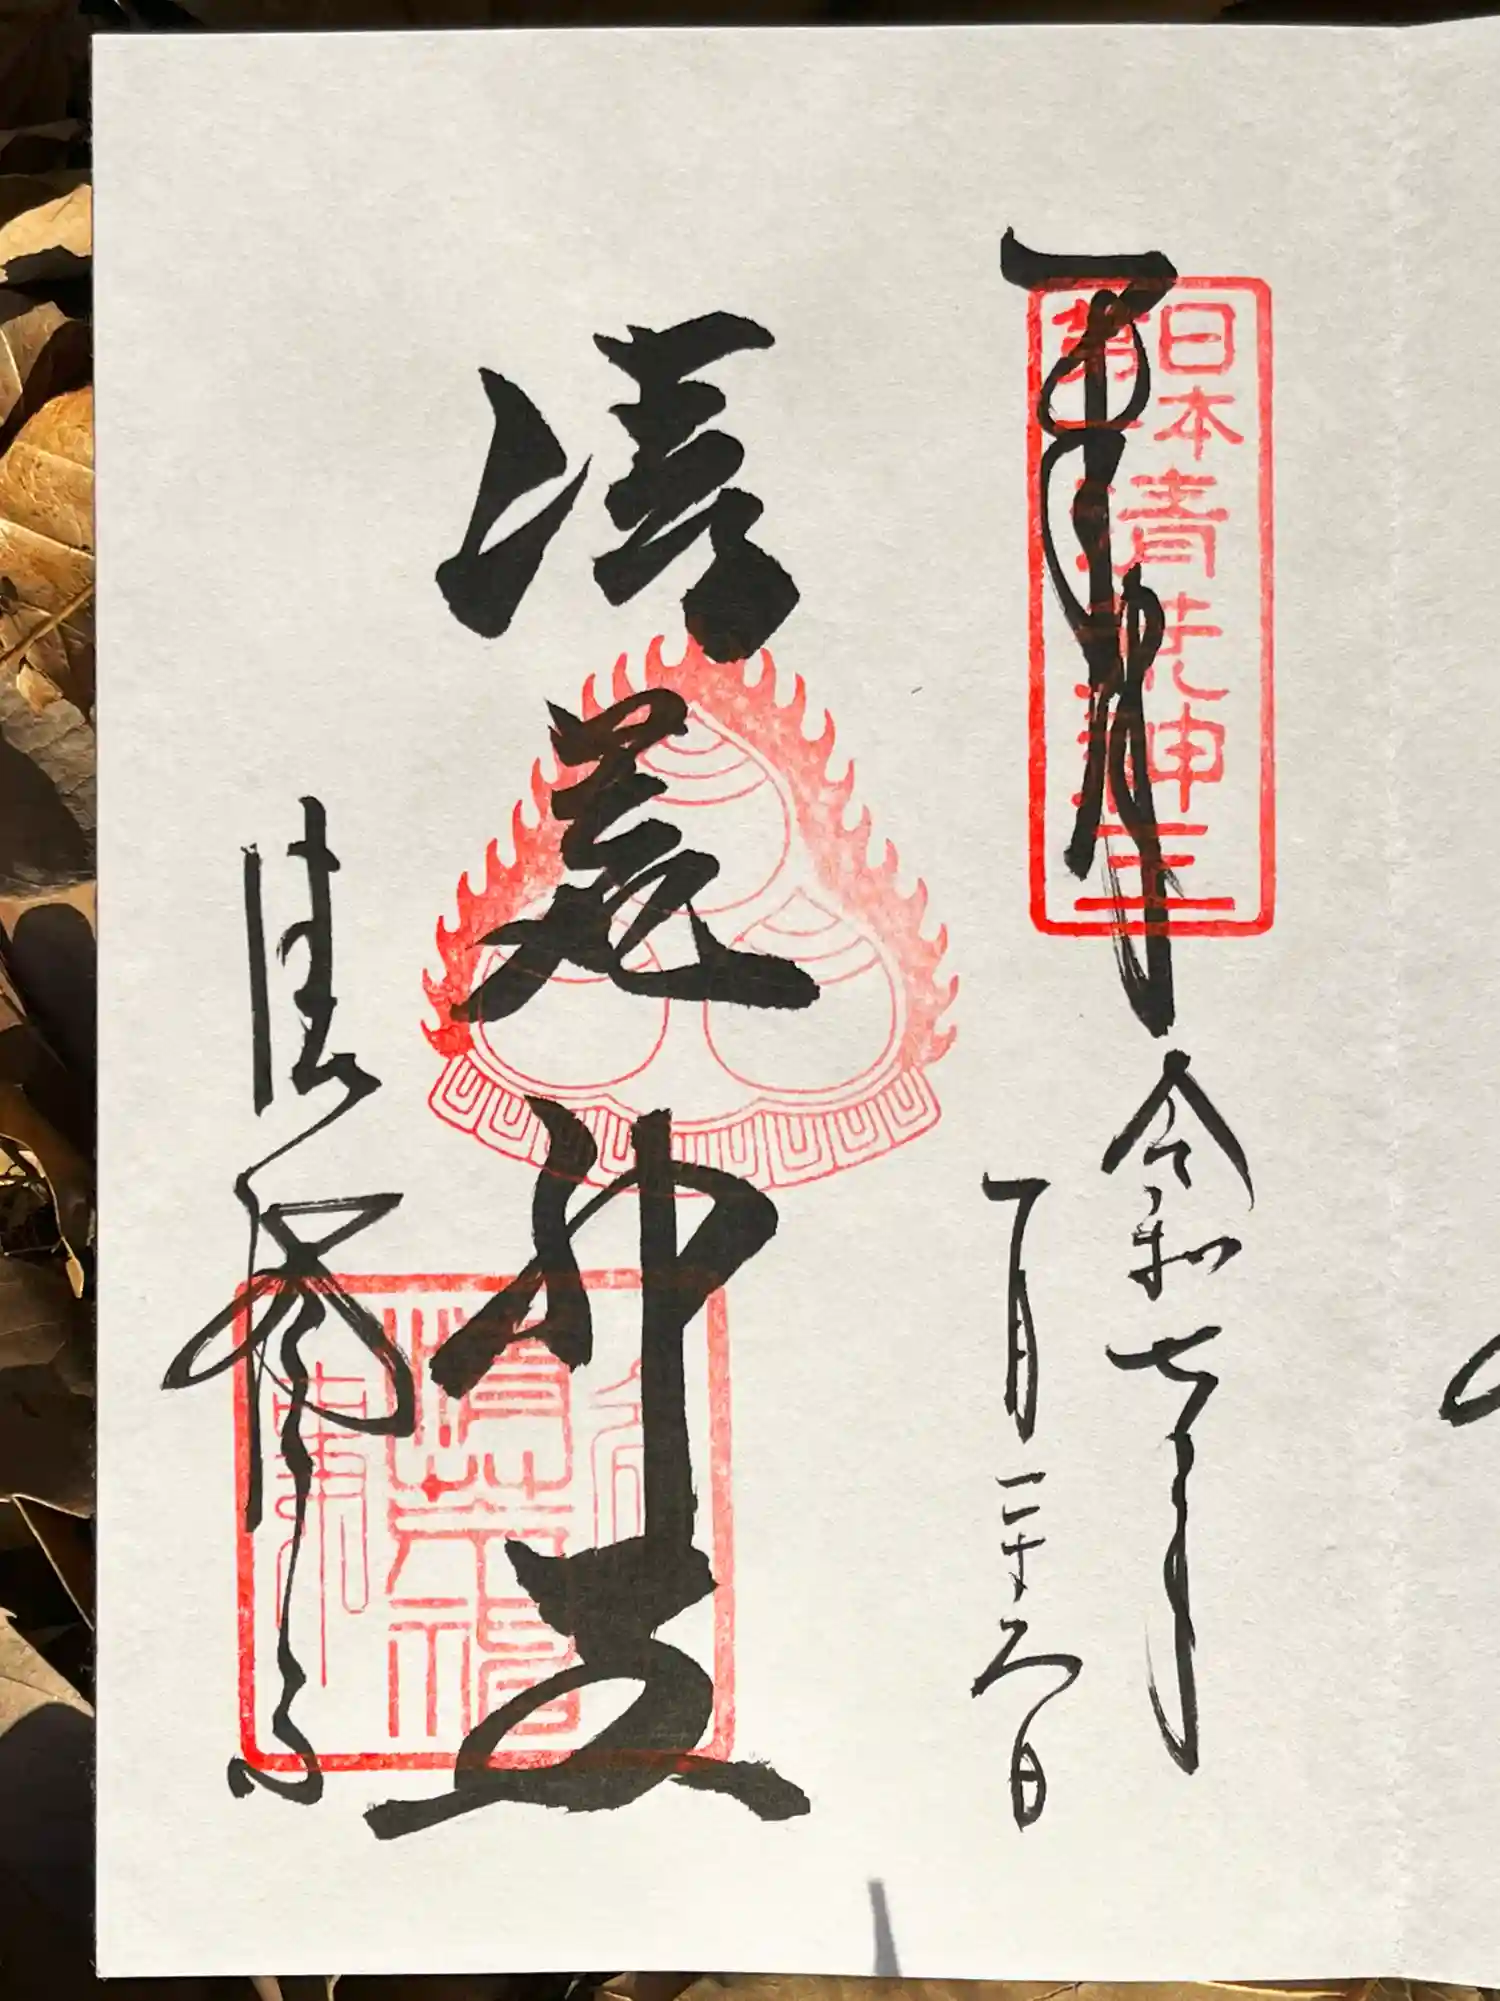 奉拝
令和七年
一月二十六日
日本
第一
清荒神王
清荒神王
清澄寺